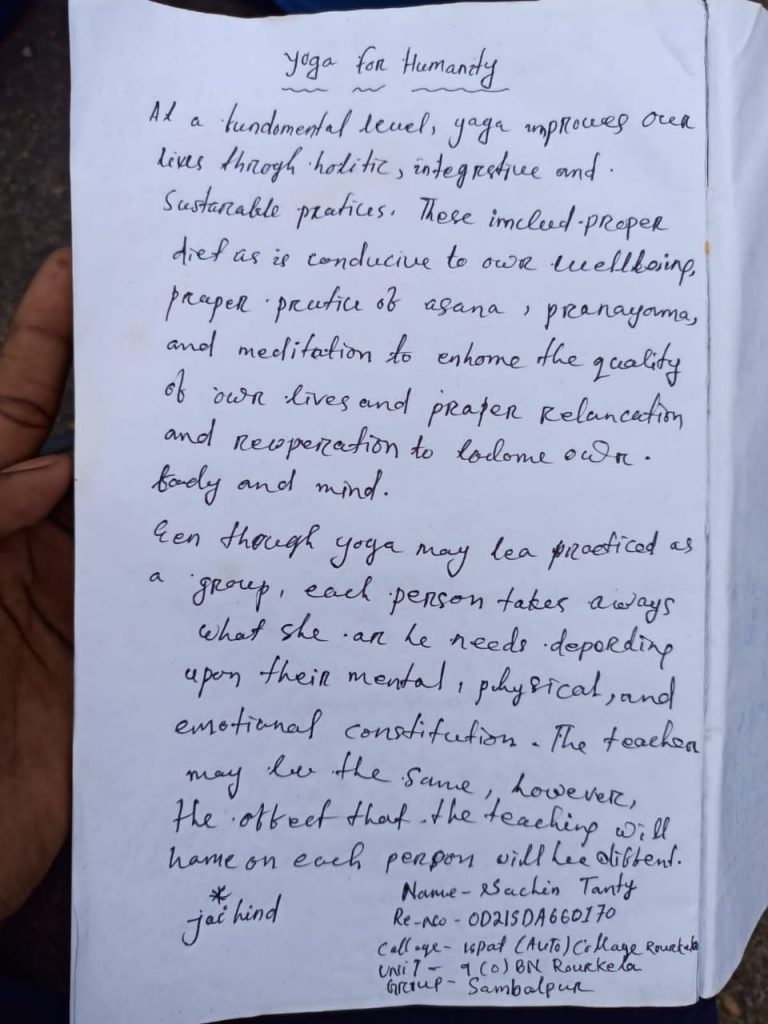 Yoga for Humanity
At a fundomental level, yaga improves our
lives throgh holitic, integrstive and.
Sustanable pratices. These imclud proper
diet as is conducive to owr wellbaing,
praper prutice of asana, pranayama,
and meditation to enhome the quality
of owr lives and praper relancation
and recoperation to lodome owr.
body and mind.
Een though yoga may lea practiced as
a group, each person takes aways
what she ar he needs depording
upon their mental, physical, and
emotional constitution. The teacher
may be the same, however,
the offect that the teaching will
hame on each person will be diffent.
* jai hind
Name - Sachin Tanty
Re-no - OD21SDA660170
Callage - ispat (AUTO) Collage Rourkela
Unit - 9 (O) BN Rourkela
Group - Sambalpur